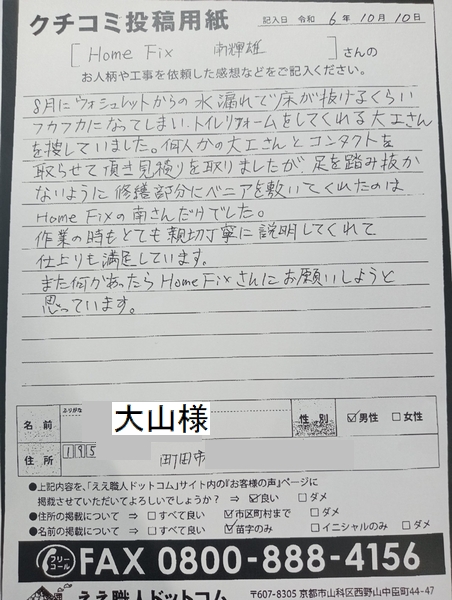 クチコミ投稿用紙
記入日 令和 6年 10月 10日
[ Home Fix 南輝雄 ] さんの
お人柄や工事を依頼した感想などをご記入ください。
8月にウォシュレットからの水漏れで床が抜けるくらい
フカフカになってしまい、トイレリフォームをしてくれる大工さん
を捜していました。何人かの大工さんとコンタクトを
取らせて頂き見積りを取りましたが、足を踏み抜か
ないように修繕部分にベニアを敷いてくれたのは
Home Fixの南さんだけでした。
作業の時もとても親切丁寧に説明してくれて
仕上りも満足しています。
また何かあったらHome Fixさんにお願いしようと
思っています。
ふりがな
名前 大山様 性別 ☑男性 □女性
住所 195 町田市
●上記内容を、「ええ職人ドットコム」サイト内の『お客様の声』ページに
掲載させていただいてよろしいでしょうか? ⇒ ☑良い □ダメ
●住所の掲載について ⇒ □すべて良い ☑市区町村まで □ダメ
●名前の掲載について ⇒ □すべて良い ☑苗字のみ □イニシャルのみ □ダメ
フリーコール FAX 0800-888-4156
ええ職人ドットコム 〒607-8305 京都市山科区西野山中臣町44-47